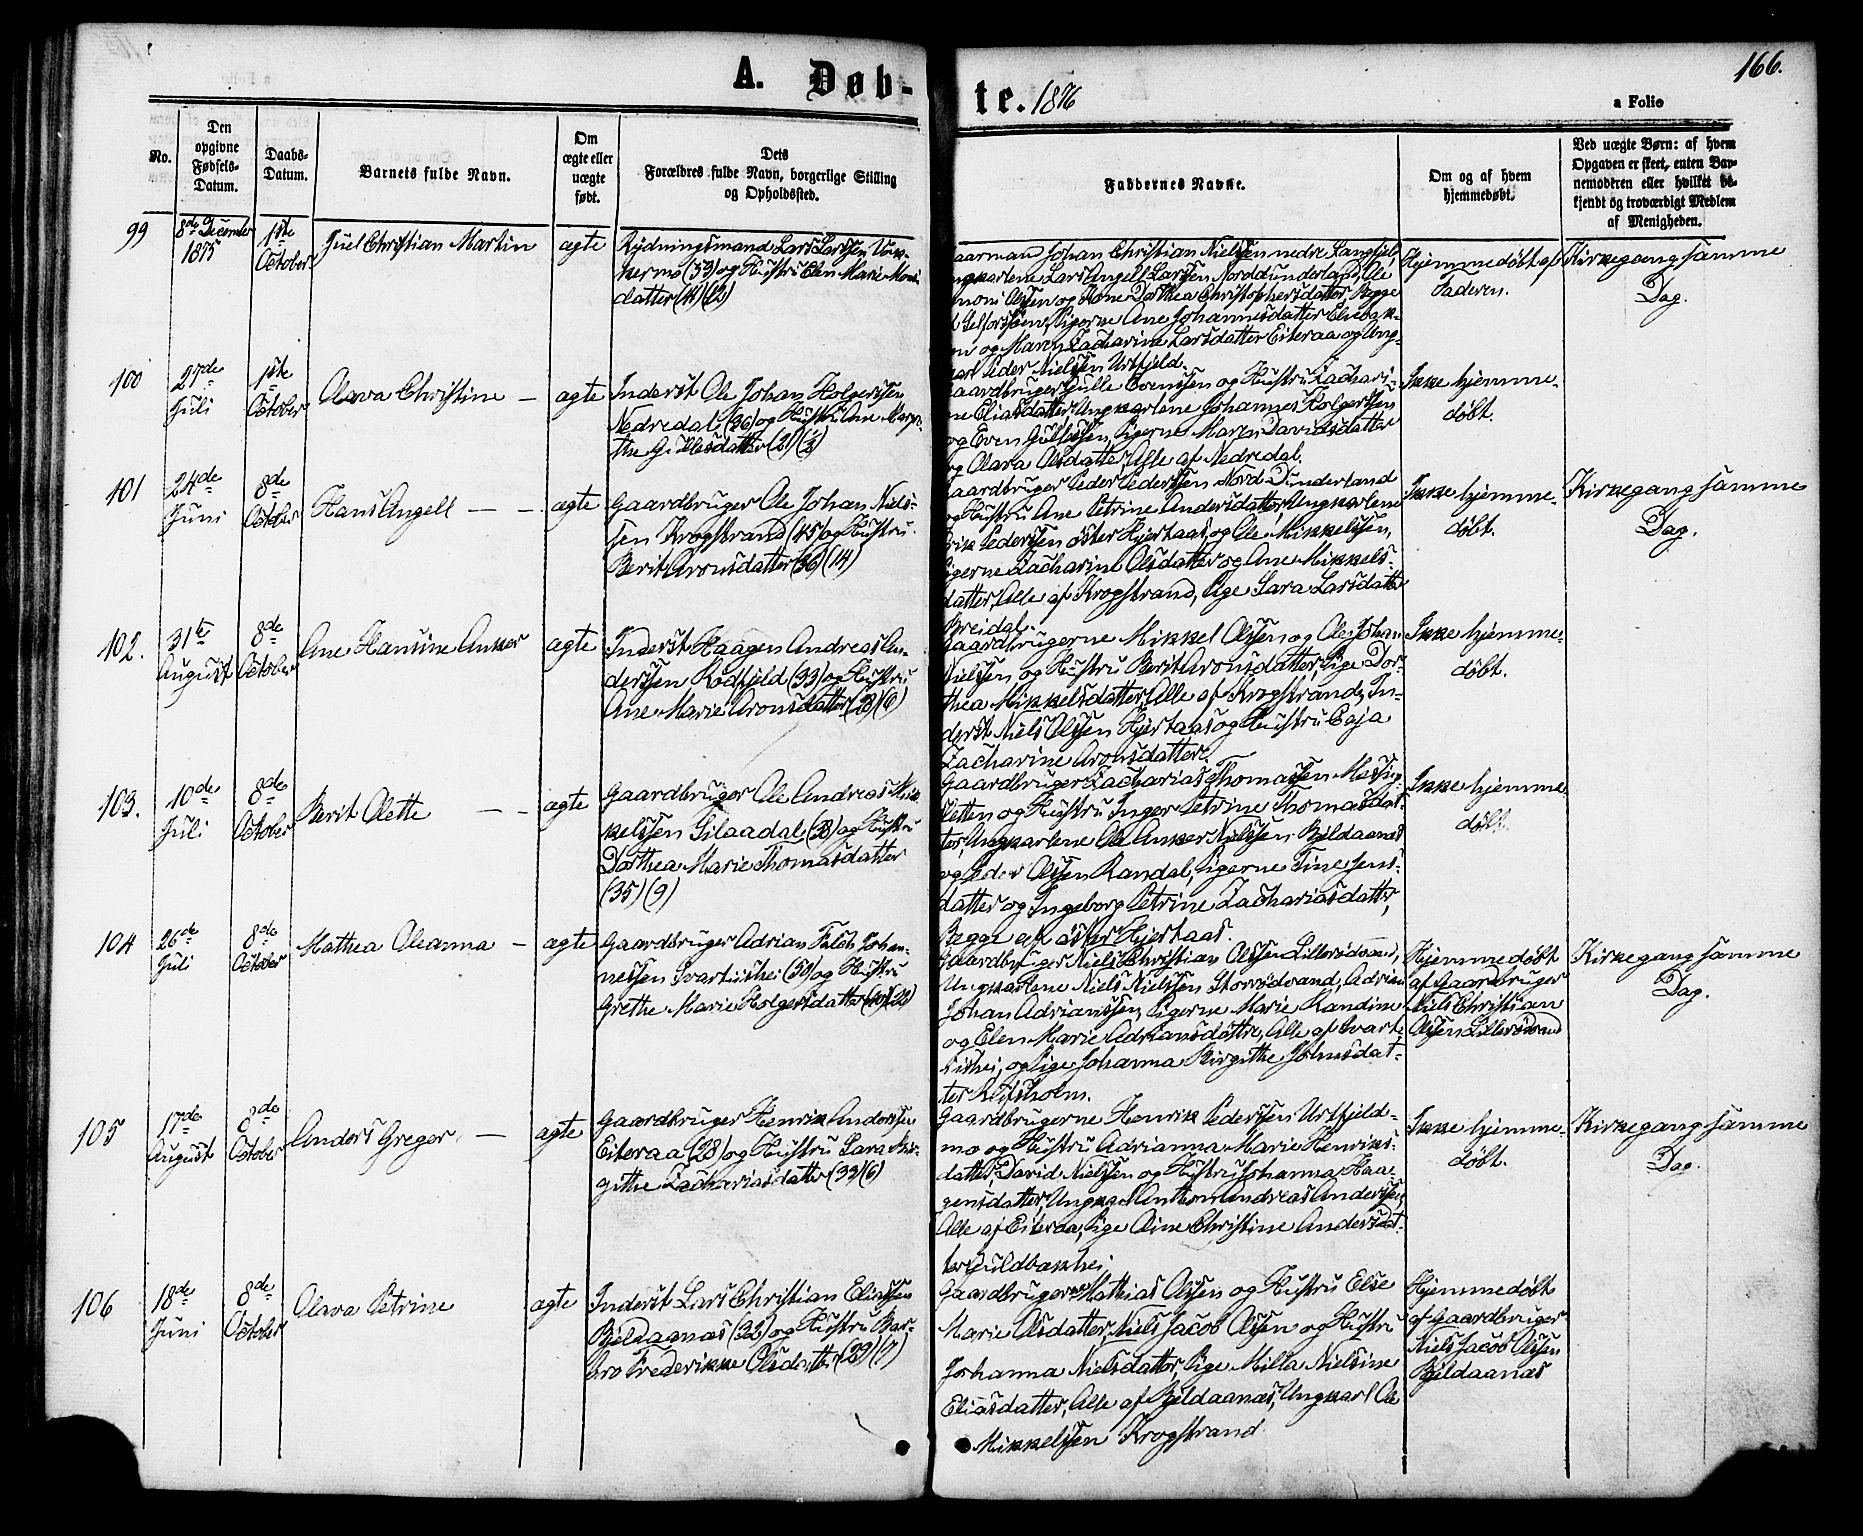 166.
A. Døb-
te. 1876
a Folio
No.
Den
opgivne
Fødsels-
Datum.
Daabs-
Datum.
Barnets fulde Navn.
Om
ægte eller
uægte
født.
Dets
Forældres fulde Navn, borgerlige Stilling
og Opholdssted.
Faddernes Navne.
Om og af hvem
hjemmedøbt.
Ved uægte Børn: af hvem
Opgaven er skeet, enten Bar-
nemoderen eller hvilket be-
kjendt og troværdigt Medlem
af Menigheden.
99
8de December
1875
1ste
October
Juel Christian Martin
ægte
Rydningsmand Lars Larssen
(53) og Hustru Elen Marie
datter (41) (12)
Johan Christian Nielssen nedre Langfjeld,
Lars Angell Larssen Norddunderland, Ole
Olssen og Kone Dorthea Christophersdatter, Begge
Pigerne Ane Johannesdatter
og Maren Zacharine Larsdatter Eiteraa og Ung-
karl Peder Nielssen Urtfjeld.
Hjemmedøbt af
Faderen.
Kirkegang samme
Dag.
100
27de
Juli
1ste
October
Olava Christine —
ægte
Inderst Ole Johan Holgerssen
Nedredal (26) og Hustru Ane Margre-
the Gullesdatter (21) (2)
Gaardbruger Gulle Evenssen og Hustru Zachari-
ne Eliasdatter, Ungkarlene Johannes Holgerssen
og Even Gullessen, Pigerne Maren Davidsdatter
og Olava Olsdatter, Alle af Nedredal.
Ikke hjemme-
døbt.
101
24de
Juni
8de
October
Hans Angell — —
ægte
Gaardbruger Ole Johan Niels-
sen Krogstrand (45) og Hustru
Berit Aronsdatter (36) (14)
Gaardbruger Peder Pederssen Nord Dunderland
og Hustru Ane Petrine Andersdatter, Ungkarlene
Erik Pederssen øster Hjertaas, og Ole Mikkelssen,
Pigerne Zacharine Olsdatter og Ane Mikkels-
datter, Alle af Krogstrand, Pige Sara Larsdatter
Bredal.
Ikke hjemme-
døbt.
Kirkegang samme
Dag.
102.
31te
August
8de
October
Ane Hansine Anker
ægte
Inderst Haagen Andreas An-
derssen Rødfjeld (33) og Hustru
Ane Marie Aronsdatter (28) (6)
Gaardbrugerne Mikkel Olssen og Ole Johan
Nielssen og Hustru Berit Aronsdatter, Pige Dor-
thea Mikkelsdatter, Alle af Krogstrand, In-
derst Niels Olssen Hjertaas og Hustru Caja
Zacharine Aronsdatter.
Ikke hjemme-
døbt.
103.
10de
Juli
8de
October
Berit Olette — —
ægte
Gaardbruger Ole Andreas Mik-
kelssen Gilaadal (28) og Hustru
Dorthea Marie Thomasdatter
(35) (9)
Gaardbruger Zacharias Thomassen Messing-
sletten og Hustru Inger Petrine Thomasdat-
ter, Ungkarlene Ole Anker Nielssen Bjeldaanæs
og Peder Olssen Randal, Pigerne Tine Jens-
datter og Ingeborg Petrine Zachariasdatter,
Begge af øster Hjertaas.
Ikke hjemme-
døbt.
104
26de
Juli
8de
October
Mathea Oleanna —
ægte
Gaardbruger Adrian Falch Johan-
nessen Svartishei (50) og Hustru
Grethe Marie Holgersdatter
Gaardbruger Niels Christian Olssen Lillerødvand,
Ungkarlene Niels Nielssen Storrødvand, Adrian
Johan Adrianssen, Pigerne Marie Randine
og Elen Marie Adriansdøttre, Alle af Svart-
ishei, og Pige Johanna Birgithe Johnsdat-
ter Reifsholm.
Hjemmedøbt
af Gaardbruger
Niels Christian
Olssen Lillerødvand
Kirkegang samme
Dag.
105
17de
August
8de
October
Anders Greger —
ægte
Gaardbruger Henrik Anderssen
Eiteraa (28) og Hustru Sara Bir-
githe Zachariasdatter (33) (6)
Gaardbrugerne Henrik Pederssen Urtfjeld-
mo og Hustru Adrianna Marie Henriks-
datter, David Nielssen og Hustru Johanna Haa-
gensdatter, Ungkarl Anton Andreas Anderssen,
Alle af Eiteraa, Pige Ane Christine Andersdat-
ter
Ikke hjemme-
døbt.
Kirkegang samme
Dag.
106
18de
Juni
8de
October
Olava Petrine
ægte
Inderst Lars Christian Eliassen
Bjeldaanæs (32) og Hustru Bar-
bro Frederikke Olsdatter (29) (7)
Gaardbrugerne Mathias Olssen og Hustru Else
Marie Olsdatter, Niels Jacob Olssen og Hustru
Johanna Nielsdatter, Pige Milla Nielsine
Eliasdatter, Alle af Bjeldaanæs, Ungkarl Ole
Mikkelssen Krogstrand
Hjemmedøbt
af Gaardbruger
Niels Jacob Olssen
Bjeldaanæs